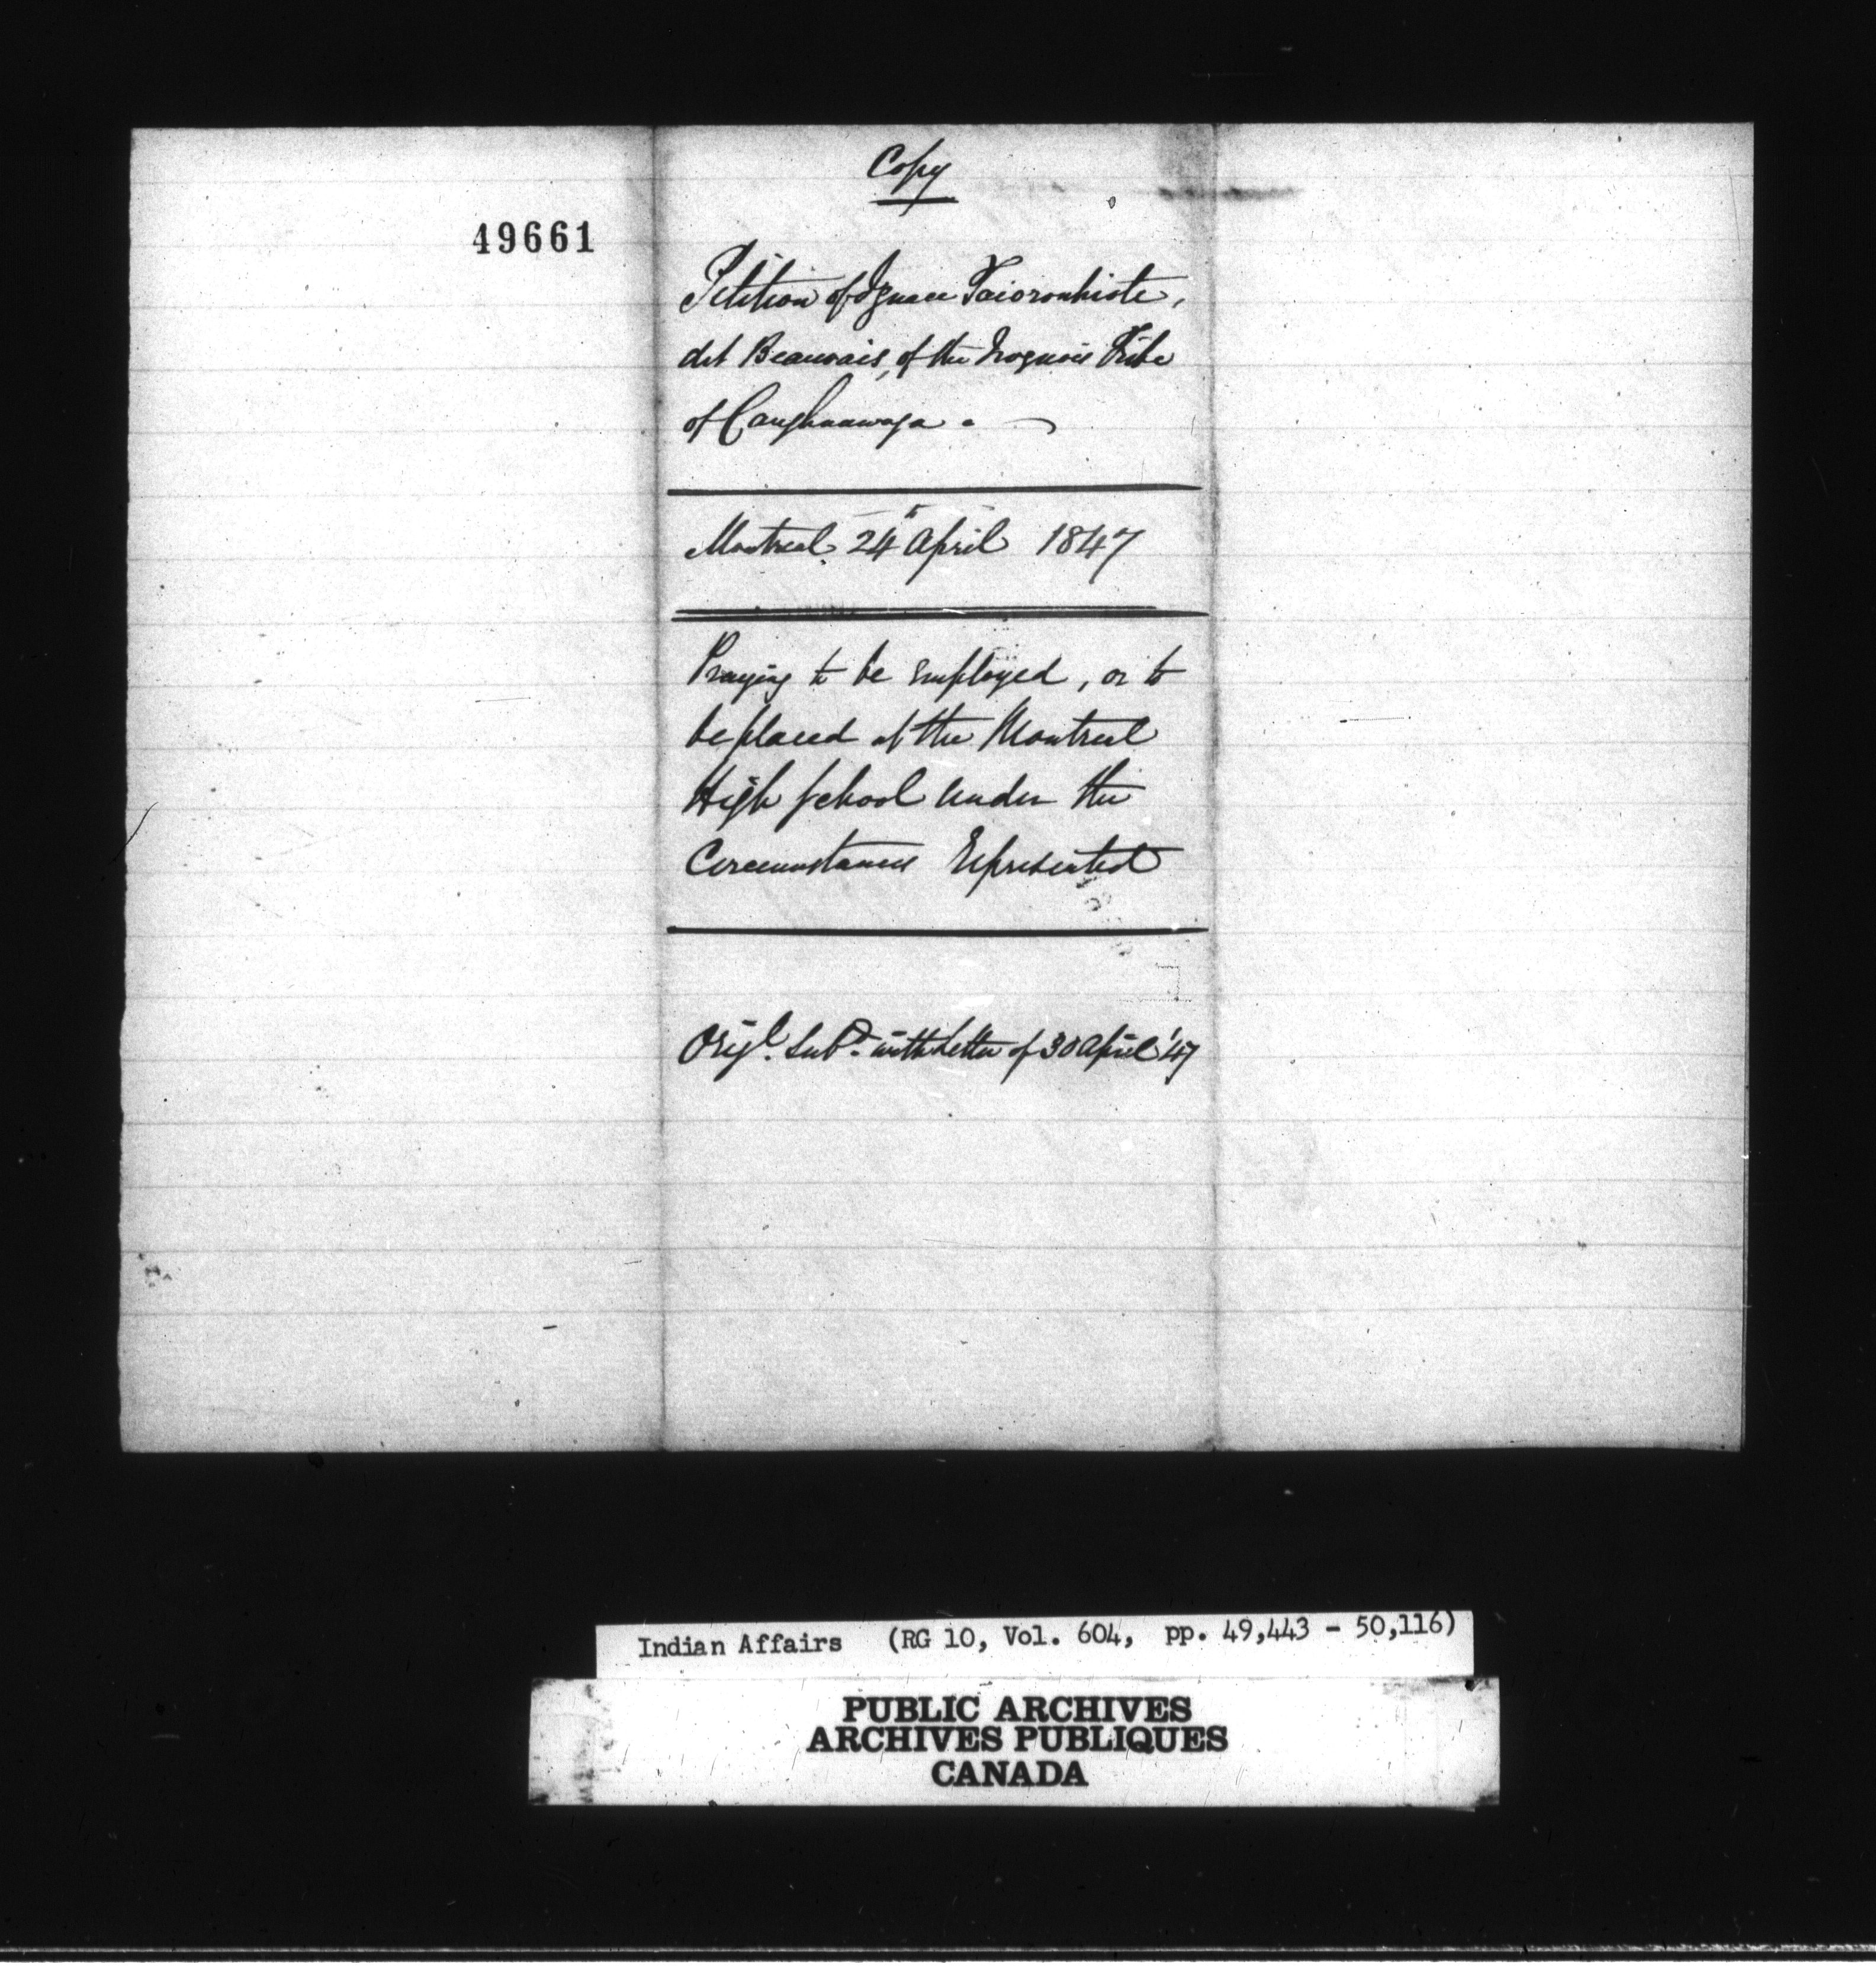 Copy
49661
Petition of Ignace Taioronhiote,
dit Beauvais, of the Iroquois Tribe
of Caughnawaga.
Montreal 24th April 1847
Praying to be employed, or to
be placed at the Montreal
High School under the
Circumstances represented
Origl. Subd. with Letter of 30 April '47
Indian Affairs (RG 10, Vol. 604, pp. 49,443 - 50,116)
PUBLIC ARCHIVES
ARCHIVES PUBLIQUES
CANADA